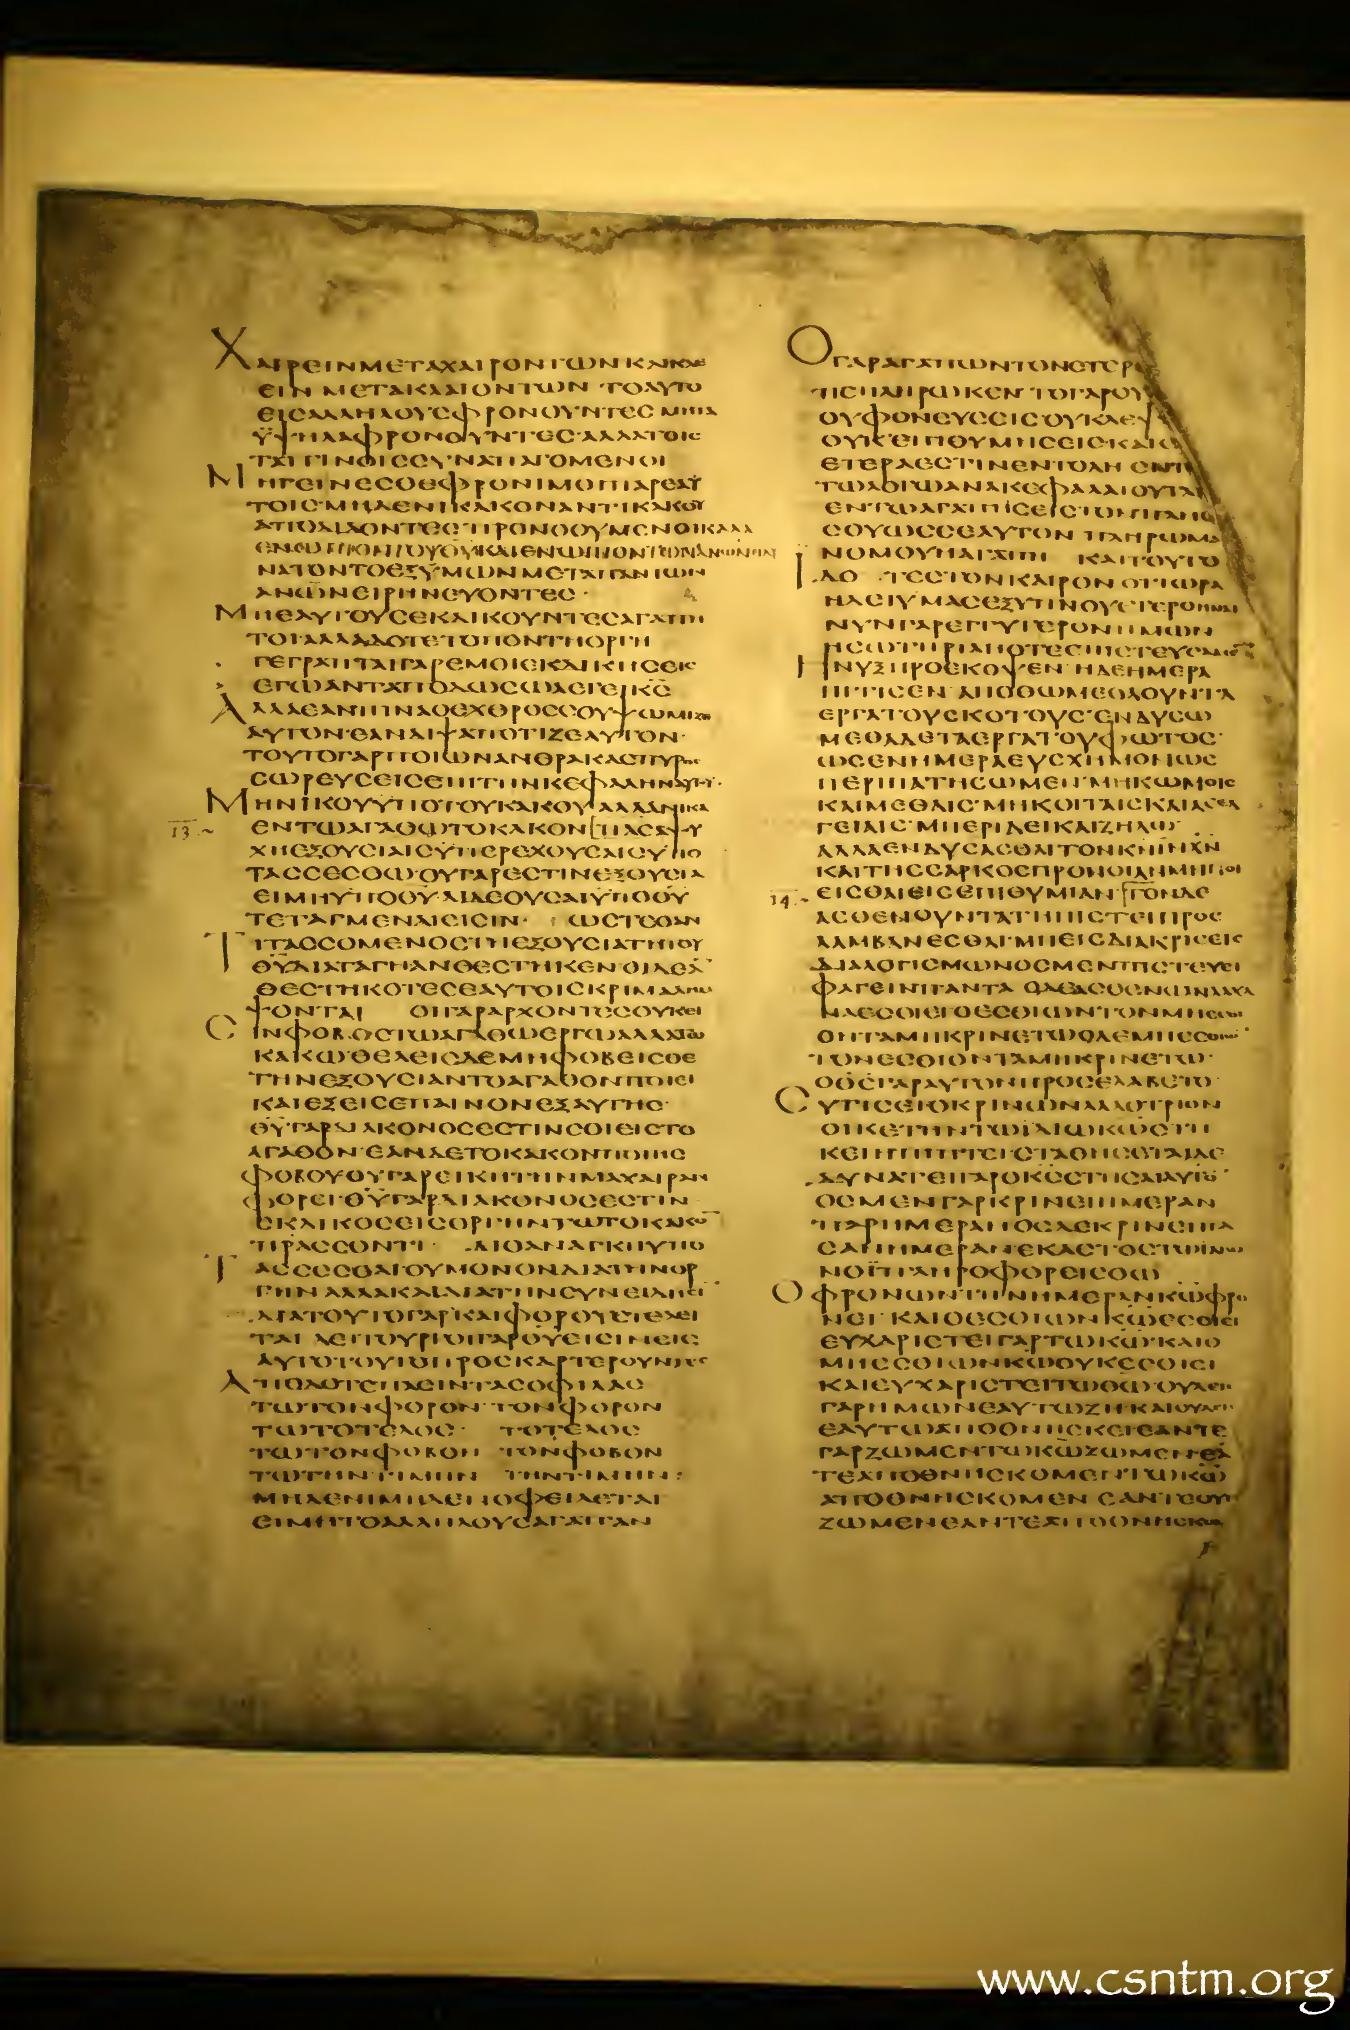 ΧΑΙΡΕΙΝΜΕΤΑΧΑΙΡΟΝΤΩΝΚΑΙΚΛΑΙ
ΕΙΝ ΜΕΤΑΚΛΑΙΟΝΤΩΝ ΤΟΑΥΤΟ
ΕΙΣΑΛΛΗΛΟΥΣΦΡΟΝΟΥΝΤΕΣ ΜΗΤΑ
ΫΨΗΛΑΦΡΟΝΟΥΝΤΕΣ·ΑΛΛΑΤΟΙΣ
ΤΑΠΙΝΟΙΣΣΥΝΑΠΑΓΟΜΕΝΟΙ
ΜΗΓΕΙΝΕΣΘΕΦΡΟΝΙΜΟΙΠΑΡΕΑΥ
ΤΟΙΣ·ΜΗΔΕΝΙΚΑΚΟΝΑΝΤΙΚΑΚΟΥ
ΑΠΟΔΙΔΟΝΤΕΣ·ΠΡΟΝΟΟΥΜΕΝΟΙΚΑΛΑ
ΕΝΩΠΙΟΝΤΟΥΘΥΚΑΙΕΝΩΠΙΟΝΤΩΝΑΝΩΝ
ΝΑΤΟΝΤΟΕΞΥΜΩΝΜΕΤΑΠΑΝΤΩΝ
ΑΝΩΝΕΙΡΗΝΕΥΟΝΤΕΣ·
ΜΗΕΑΥΤΟΥΣΕΚΔΙΚΟΥΝΤΕΣΑΓΑΠΗ
ΤΟΙ·ΑΛΛΑΔΟΤΕΤΟΠΟΝΤΗΟΡΓΗ
ΓΕΓΡΑΠΤΑΙΓΑΡΕΜΟΙΕΚΔΙΚΗΣΕΙΣ
ΕΓΩΑΝΤΑΠΟΔΩΣΩΛΕΓΕΙΚΣ
ΑΛΛΑΕΑΝΠΙΝΑΟΕΧΘΡΟΣΣΟΥΨΩΜΙΖΕ
ΑΥΤΟΝ·ΕΑΝΔΙΨΑΠΟΤΙΖΕΑΥΤΟΝ·
ΤΟΥΤΟΓΑΡΠΟΙΩΝΑΝΘΡΑΚΑΣΠΥΡΟΣ
ΣΩΡΕΥΣΕΙΣΕΠΙΤΗΝΚΕΦΑΛΗΝΑΥΤΟΥ·
ΜΗΝΙΚΟΥΫΠΟΤΟΥΚΑΚΟΥΑΛΛΑΝΙΚΑ
13 ΕΝΤΩΑΓΑΘΩΤΟΚΑΚΟΝ ΠΑΣΑΨΥ
ΧΗΕΞΟΥΣΙΑΙΣΫΠΕΡΕΧΟΥΣΑΙΣΫΠΟ
ΤΑΣΣΕΣΘΩ·ΟΥΓΑΡΕΣΤΙΝΕΞΟΥΣΙΑ
ΕΙΜΗΫΠΟΘΥ·ΑΙΔΕΟΥΣΑΙΫΠΟΘΥ
ΤΕΤΑΓΜΕΝΑΙΕΙΣΙΝ· ΩΣΤΕΟΑΝ
ΤΙΤΑΣΣΟΜΕΝΟΣΤΗΕΞΟΥΣΙΑΤΗΤΟΥ
ΘΥΔΙΑΤΑΓΗΑΝΘΕΣΤΗΚΕΝΟΙΔΕΑΝ
ΘΕΣΤΗΚΟΤΕΣΕΑΥΤΟΙΣΚΡΙΜΑΛΗΜ
ΨΟΝΤΑΙ ΟΙΓΑΡΑΡΧΟΝΤΕΣΟΥΚΕΙ
ΣΙΝΦΟΒΟΣΤΩΑΓΑΘΩΕΡΓΩΑΛΛΑΤΩ
ΚΑΚΩ·ΘΕΛΕΙΣΔΕΜΗΦΟΒΕΙΣΘΕ
ΤΗΝΕΞΟΥΣΙΑΝΤΟΑΓΑΘΟΝΠΟΙΕΙ
ΚΑΙΕΞΕΙΣΕΠΑΙΝΟΝΕΞΑΥΤΗΣ·
ΘΥΓΑΡΔΙΑΚΟΝΟΣΕΣΤΙΝΣΟΙΕΙΣΤΟ
ΑΓΑΘΟΝ·ΕΑΝΔΕΤΟΚΑΚΟΝΠΟΙΗΣ
ΦΟΒΟΥΟΥΓΑΡΕΙΚΗΤΗΝΜΑΧΑΙΡΑΝ
ΦΟΡΕΙ·ΘΥΓΑΡΔΙΑΚΟΝΟΣΕΣΤΙΝ
ΕΚΔΙΚΟΣΕΙΣΟΡΓΗΝΤΩΤΟΚΑΚΟ
ΠΡΑΣΣΟΝΤΙ· ΔΙΟΑΝΑΓΚΗΥΠΟ
ΤΑΣΣΕΣΘΑΙΟΥΜΟΝΟΝΔΙΑΤΗΝΟΡ
ΓΗΝΑΛΛΑΚΑΙΔΙΑΤΗΝΣΥΝΕΙΔΗΣΙ
ΔΙΑΤΟΥΤΟΓΑΡΚΑΙΦΟΡΟΥΣΤΕΛΕΙ
ΤΑΙ ΛΕΙΤΟΥΡΓΟΙΓΑΡΘΥΕΙΣΙΝΕΙΣ
ΑΥΤΟΤΟΥΤΟΠΡΟΣΚΑΡΤΕΡΟΥΝΤΕΣ
ΑΠΟΔΟΤΕΠΑΣΙΝΤΑΣΟΦΙΛΑΣ
ΤΩΤΟΝΦΟΡΟΝ·ΤΟΝΦΟΡΟΝ
ΤΩΤΟΤΕΛΟΣ· ΤΟΤΕΛΟΣ
ΤΩΤΟΝΦΟΒΟΝ ΤΟΝΦΟΒΟΝ
ΤΩΤΗΝΤΙΜΗΝ ΤΗΝΤΙΜΗΝ:
ΜΗΔΕΝΙΜΗΔΕΝΟΦΕΙΛΕΤΑΙ
ΕΙΜΗΤΟΑΛΛΗΛΟΥΣΑΓΑΠΑΝ
ΟΓΑΡΑΓΑΠΩΝΤΟΝΕΤΕΡ
ΠΕΠΛΗΡΩΚΕΝ ΤΟΓΑΡΟΥ
ΟΥΦΟΝΕΥΣΕΙΣΟΥΚΛΕΨ
ΟΥΚΕΠΙΘΥΜΗΣΕΙΣΚΑΙ
ΕΤΕΡΑΕΣΤΙΝΕΝΤΟΛΗ
ΤΩΛΟΓΩΑΝΑΚΕΦΑΛΑΙΟΥΤΑΙ
ΕΝΤΩΑΓΑΠΗΣΕΙΣΤΟΝΠΛΗΣ
ΣΟΥΩΣΣΕΑΥΤΟΝ ΠΛΗΡΩΜΑ
ΝΟΜΟΥΗΑΓΑΠΗ ΚΑΙΤΟΥΤΟ
ΙΔΟ ΤΕΣΤΟΝΚΑΙΡΟΝ ΟΤΙΩΡΑ
ΗΔΕΙΥΜΑΣΕΞΥΠΝΟΥΕΓΕΡΘΗΝΑΙ
ΝΥΝΓΑΡΕΓΓΥΤΕΡΟΝΗΜΩΝ
ΗΣΩΤΗΡΙΑΗΟΤΕΕΠΙΣΤΕΥΣΑΜΕΝ
ΗΝΥΞΠΡΟΕΚΟΨΕΝ ΗΔΕΗΜΕΡΑ
ΗΓΓΙΣΕΝ ΑΠΟΘΩΜΕΘΑΟΥΝΤΑ
ΕΡΓΑΤΟΥΣΚΟΤΟΥΣ·ΕΝΔΥΣΩ
ΜΕΘΑΔΕΤΑΕΡΓΑΤΟΥΦΩΤΟΣ·
ΩΣΕΝΗΜΕΡΑΕΥΣΧΗΜΟΝΩΣ
ΠΕΡΙΠΑΤΗΣΩΜΕΝ·ΜΗΚΩΜΟΙΣ
ΚΑΙΜΕΘΑΙΣ·ΜΗΚΟΙΤΑΙΣΚΑΙΑΣΕΛ
ΓΕΙΑΙΣ·ΜΗΕΡΙΔΕΙΚΑΙΖΗΛΩ·
ΑΛΛΑΕΝΔΥΣΑΣΘΑΙΤΟΝΚΗΙΗΝΧΝ
ΚΑΙΤΗΣΣΑΡΚΟΣΠΡΟΝΟΙΑΝΜΗΠΟΙ
14 ΕΙΣΘΑΙΕΙΣΕΠΙΘΥΜΙΑΝ·ΤΟΝΔΕ
ΑΣΘΕΝΟΥΝΤΑΤΗΠΙΣΤΕΙΠΡΟΣ
ΛΑΜΒΑΝΕΣΘΑΙ·ΜΗΕΙΣΔΙΑΚΡΙΣΕΙΣ
ΔΙΑΛΟΓΙΣΜΩΝΟΣΜΕΝΠΙΣΤΕΥΕΙ
ΦΑΓΕΙΝΠΑΝΤΑ ΟΔΕΑΣΘΕΝΩΝΛΑΧΑ
ΝΑΕΣΘΙΕΙΟΕΣΘΙΩΝΤΟΝΜΗΕΣΘΙ
ΟΝΤΑΜΗΚΡΙΝΕΤΩΟΔΕΜΗΕΣΘΙΩΝ
ΤΟΝΕΣΘΙΟΝΤΑΜΗΚΡΙΝΕΤΩ·
ΟΘΣΓΑΡΑΥΤΟΝΠΡΟΣΕΛΑΒΕΤΟ·
ΣΥΤΙΣΕΙΟΚΡΙΝΩΝΑΛΛΟΤΡΙΟΝ
ΟΙΚΕΤΗΝΤΩΙΔΙΩΚΩΣΤΗ
ΚΕΙΗΠΙΠΤΕΙ·ΣΤΑΘΗΣΕΤΑΙΔΕ
ΔΥΝΑΤΕΙΓΑΡΟΚΣΣΤΗΣΑΙΑΥΤΟ
ΟΣΜΕΝΓΑΡΚΡΙΝΕΙΗΜΕΡΑΝ
ΠΑΡΗΜΕΡΑΝΟΣΔΕΚΡΙΝΕΙΠΑ
ΣΑΝΗΜΕΡΑΝ·ΕΚΑΣΤΟΣΤΩΙΔΙΩ
ΝΟΪΠΛΗΡΟΦΟΡΕΙΣΘΩ
ΟΦΡΟΝΩΝΤΗΝΗΜΕΡΑΝΚΩΦΡΟ
ΝΕΙ·ΚΑΙΟΕΣΘΙΩΝΚΩΕΣΘΙΕΙ
ΕΥΧΑΡΙΣΤΕΙΓΑΡΤΩΚΩ·ΚΑΙΟ
ΜΗΕΣΘΙΩΝΚΩΟΥΚΕΣΘΙΕΙ
ΚΑΙΕΥΧΑΡΙΣΤΕΙΤΩΘΩ·ΟΥΔΕΙΣ
ΓΑΡΗΜΩΝΕΑΥΤΩΖΗ·ΚΑΙΟΥΔΕΙΣ
ΕΑΥΤΩΑΠΟΘΝΗΣΚΕΙΕΑΝΤΕ
ΓΑΡΖΩΜΕΝΤΩΚΩΖΩΜΕΝΕΑ
ΤΕΑΠΟΘΝΗΣΚΟΜΕΝΤΩΚΩ
ΑΠΟΘΝΗΣΚΟΜΕΝ ΕΑΝΤΕΟΥΝ
ΖΩΜΕΝΕΑΝΤΕΑΠΟΘΝΗΣΚΩ
www.csntm.org